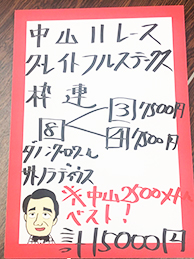 中山11レース
グレイトフルステークス
枠連
3 7500円
8
4 7500円
ダノングロワール
サトノラディウス
※中山2500メートル
ベスト!
計15000円